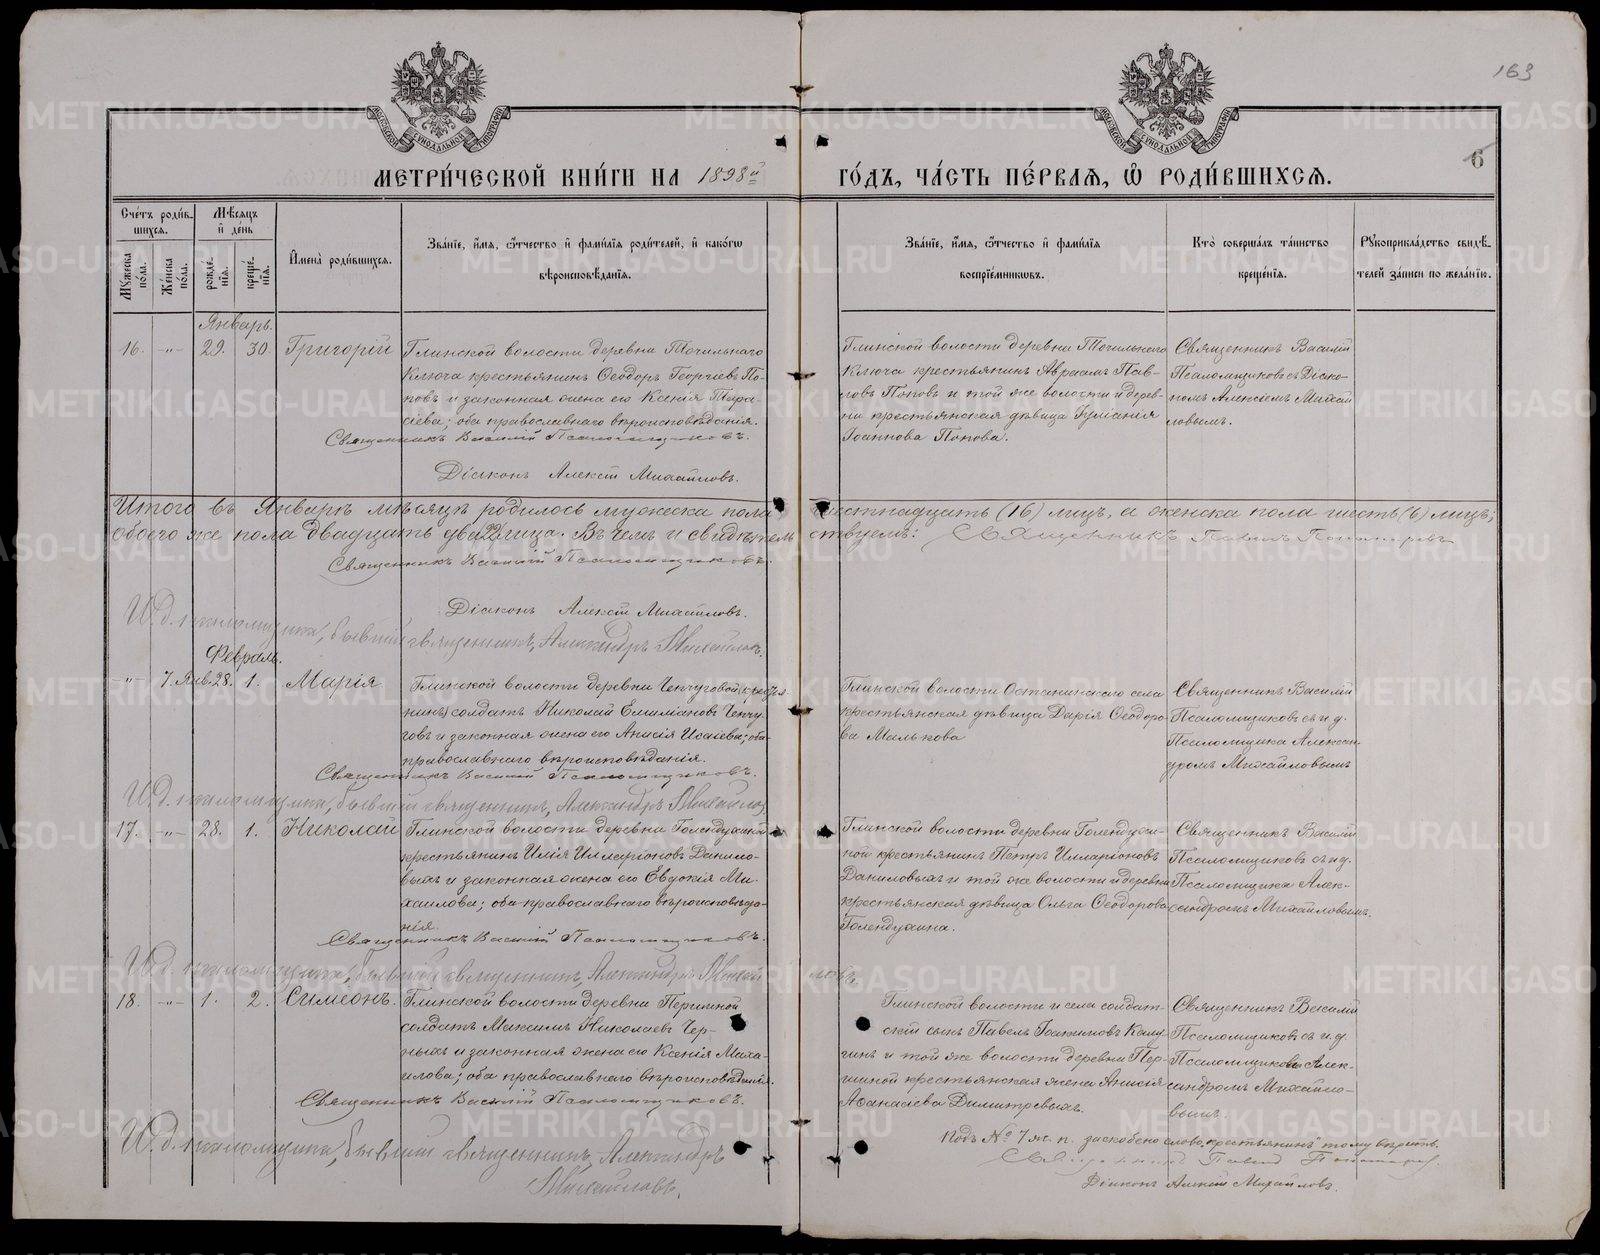 163
6
МЕТРИ́ЧЕСКОЙ КНИ́ГИ НА 1898й
ГО́ДЪ, ЧА́СТЬ ПЕ́РВАЯ, Ѡ РОДИ́ВШИХСЯ.
Сче́тъ роди́в-
шихся.
Мѣ́сяцъ
и де́нь
Мꙋ́жеска
по́ла.
Же́нска
по́ла.
рожде́-
нїя.
креще́-
нїя.
Имена̀ роди́вшихся.
Зва́нїе, и́мя, ѻ҆́тчество и фами́лїя роди́телей, и како́гѡ
вѣроисповѣ́данїя.
Зва́нїе, и́мя, ѻ҆́тчество и фами́лїя
воспрїе́мниковъ.
Кто̀ соверша́лъ та́инство
креще́нїя.
Рꙋкоприкла́дство свидѣ́-
телей за́писи по жела́нїю.
Январь.
16. -„- 29. 30. Григорій
Глинской волости деревни Точильнаго
Ключа крестьянинъ Ѳеодоръ Георгіевъ По-
повъ и законная жена его Ксенія Тара-
сіева; оба православнаго вѣроисповѣданія.
Священникъ Василій Псаломщиковъ.
Діаконъ Алексій Михайловъ.
Глинской волости деревни Точильнаго
Ключа крестьянинъ Авраамъ Пав-
ловъ Поповъ и той же волости и дерев-
ни крестьянская дѣвица Іуліанія
Іоаннова Попова.
Священникъ Василій
Псаломщиковъ съ Діако-
номъ Алексіемъ Михай-
ловымъ.
Итого въ Январѣ мѣсяцѣ родилось мужеска пола шестнадцать (16) лицъ, а женска пола шесть (6) лицъ;
обоего же пола двадцать два (22) лица. Въ чемъ и свидѣтельствуемъ: Священникъ Павелъ Пономаревъ
Священникъ Василій Псаломщиковъ.
Діаконъ Алексій Михайловъ.
И. д. псаломщика, бывшій священникъ, Александръ Михайловъ.
Февраль.
-„- 7. Янв. 28. 1. Марія
Глинской волости деревни Ченчуговой (крестья-
нинъ) солдатъ Николай Емиліановъ Ченчу-
говъ и законная жена его Анисія Исаіева; оба
православнаго вѣроисповѣданія.
Священникъ Василій Псаломщиковъ.
И. д. псаломщика, бывшій священникъ, Александръ Михайловъ
Глинской волости Останинскаго села
крестьянская дѣвица Дарія Ѳеодоро-
ва Малькова
Священникъ Василій
Псаломщиковъ съ и. д.
Псаломщика Алексан-
дромъ Михайловымъ
17. -„- 28. 1. Николай
Глинской волости деревни Голендухиной
крестьянинъ Илія Илларіоновъ Данило-
выхъ и законная жена его Евдокія Ми-
хаилова; оба православнаго вѣроисповѣда-
нія.
Священникъ Василій Псаломщиковъ.
И. д. псаломщика, бывшій священникъ, Александръ Михайловъ.
Глинской волости деревни Голендухи-
ной крестьянинъ Петръ Илларіоновъ
Даниловыхъ и той же волости и деревни
крестьянская дѣвица Ольга Ѳеодорова
Голендухина.
Священникъ Василій
Псаломщиковъ съ и. д.
Псаломщика Алек-
сандромъ Михайловымъ.
18. -„- 1. 2. Симеонъ.
Глинской волости деревни Першиной
солдатъ Максимъ Николаевъ Чер-
ныхъ и законная жена его Ксенія Миха-
илова; оба православнаго вѣроисповѣданія.
Священникъ Василій Псаломщиковъ.
И. д. псаломщика, бывшій священникъ Александръ
Михайловъ.
Глинской волости и села солдат-
скій сынъ Павелъ Іоакимовъ Калу-
гинъ и той же волости деревни Пер-
шиной крестьянская жена Анисія
Аѳанасіева Димитріевыхъ.
Священникъ Василій
Псаломщиковъ съ и. д.
Псаломщикомъ Алек-
сандромъ Михайло-
вымъ.
Подъ № 7 ж. п. заскоблено слово „крестьянинъ" тому вѣрить.
Священникъ Павелъ Пономаревъ.
Діаконъ Алексій Михайловъ.